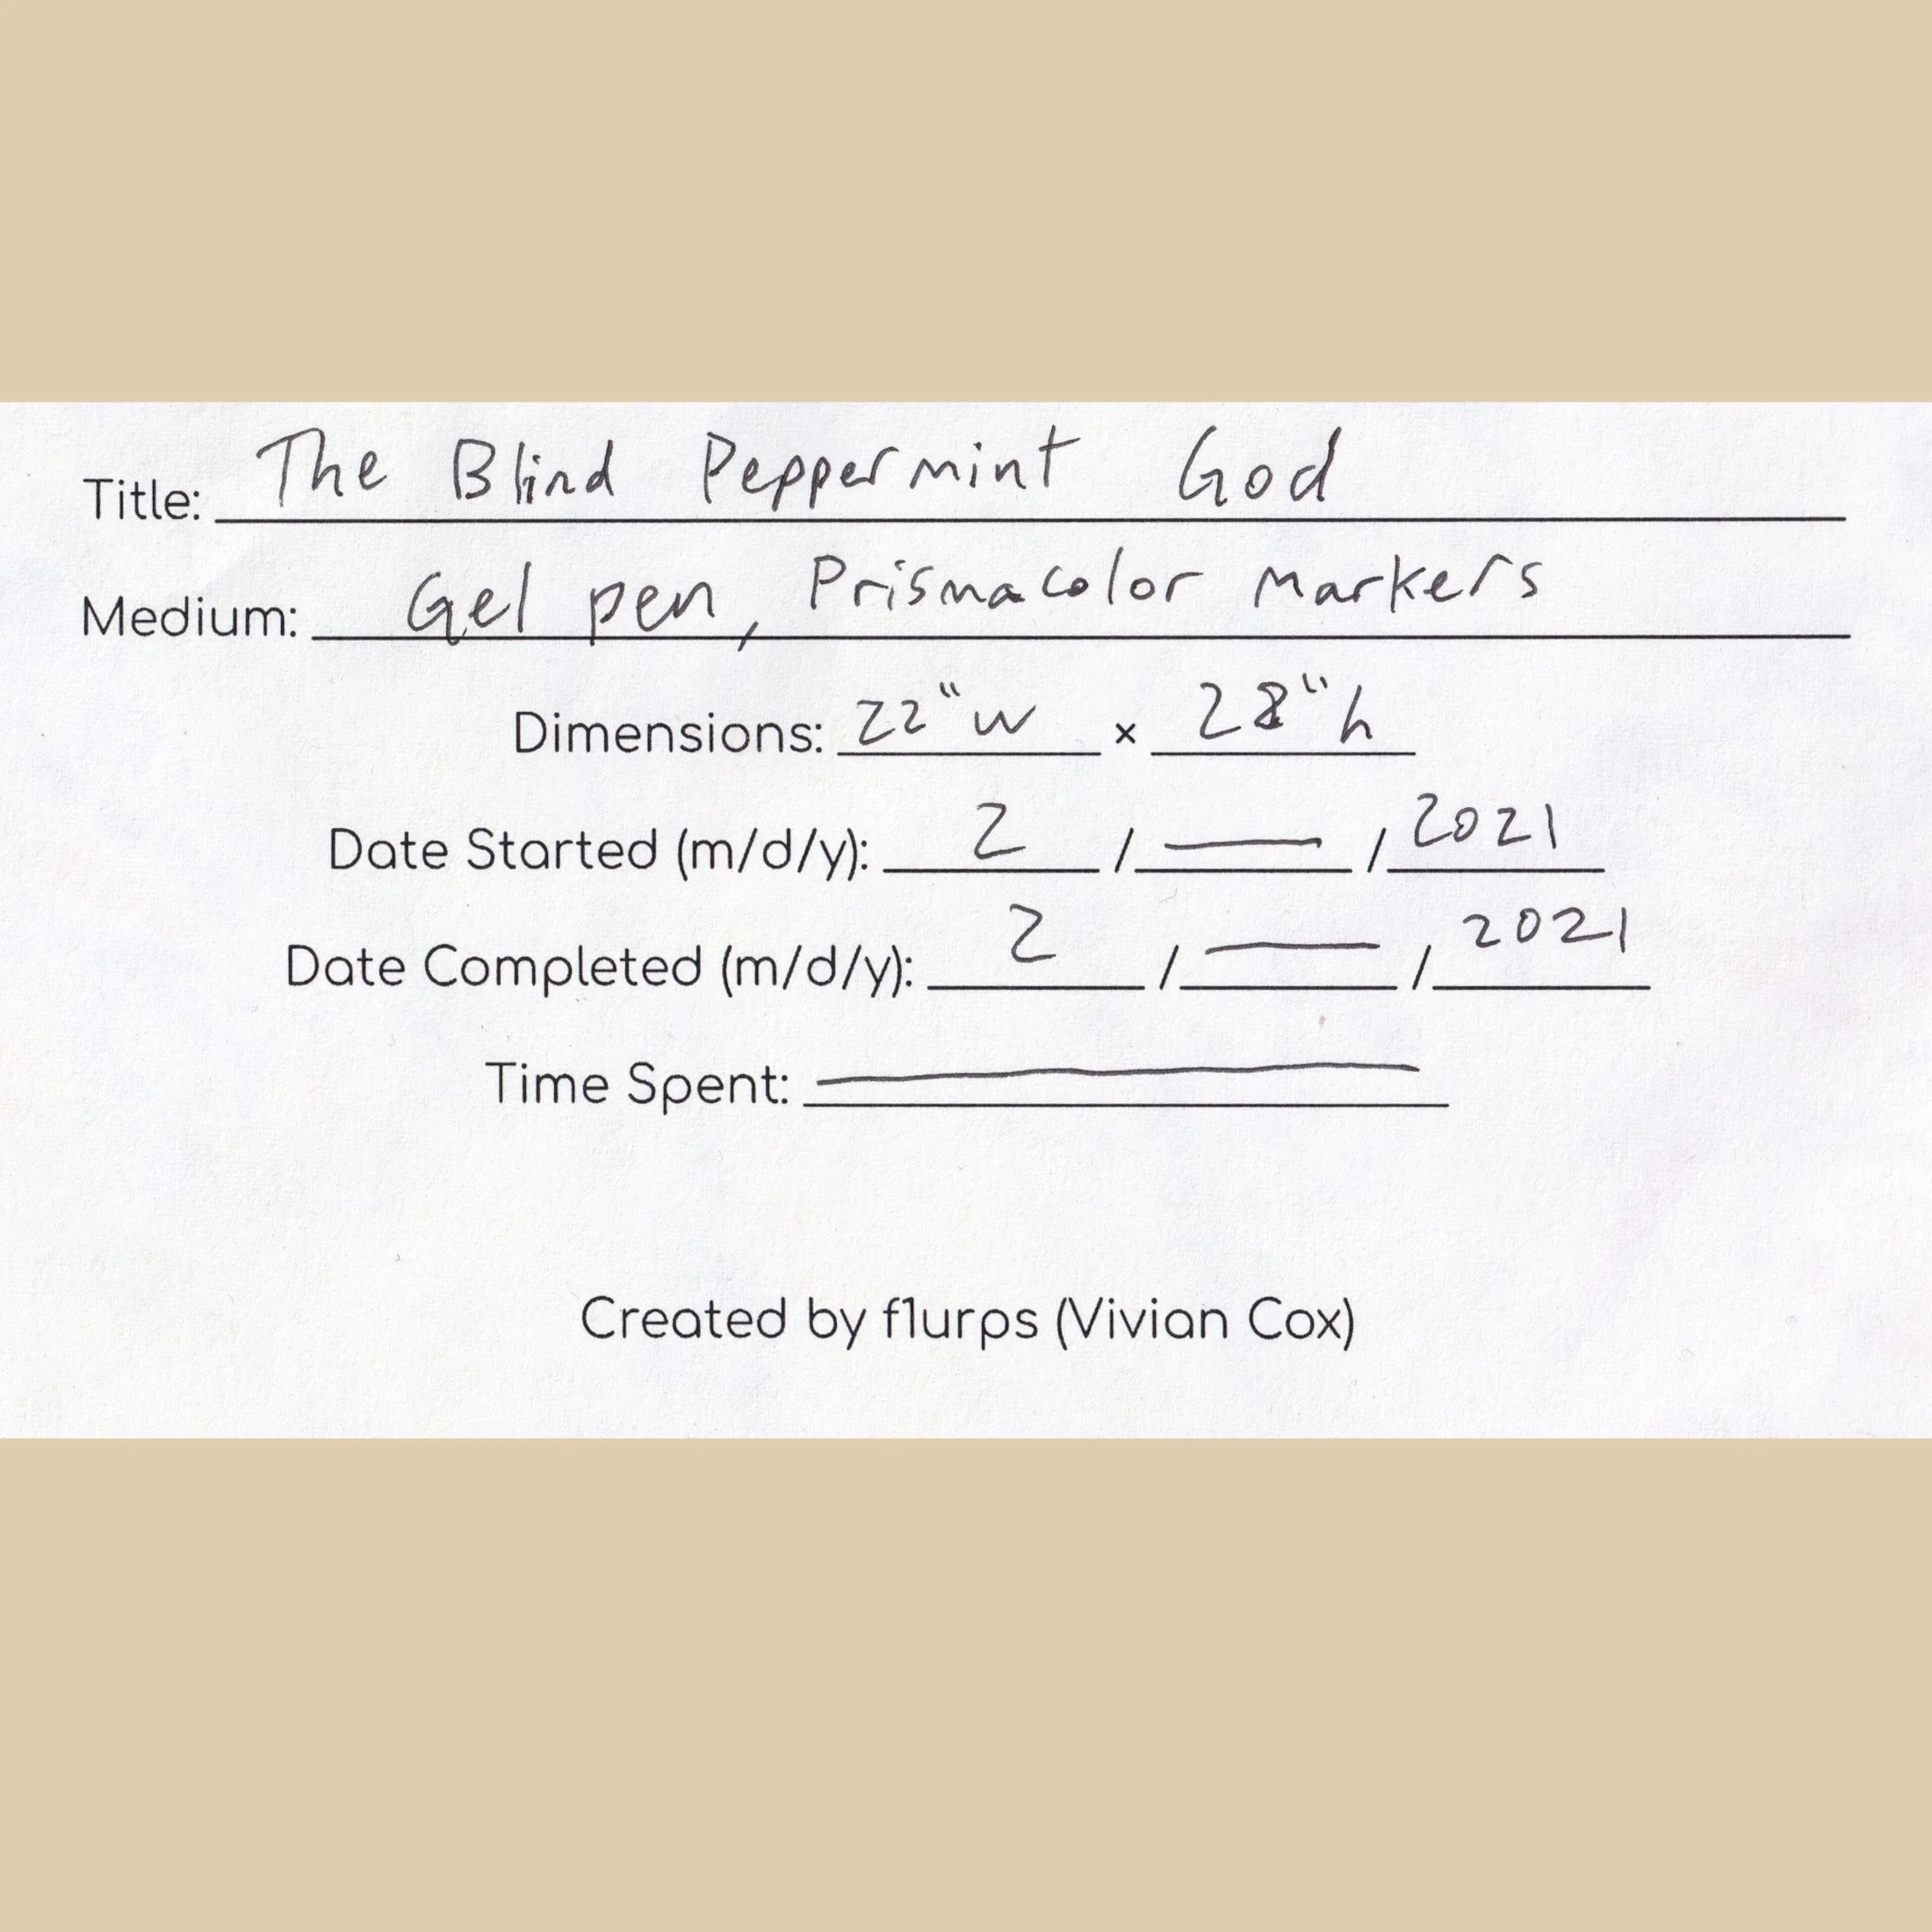 Title: The Blind Peppermint God
Medium: Gel pen, Prismacolor Markers
Dimensions: 22"w × 28"h
Date Started (m/d/y): 2 / — / 2021
Date Completed (m/d/y): 2 / — / 2021
Time Spent: —
Created by f1urps (Vivian Cox)